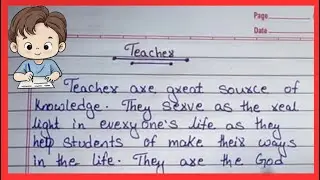 Page
Date
Teacher
Teacher are great source of
knowledge. They serve as the real
light in everyone's life as they
help students of make their ways
in the life. They are the God